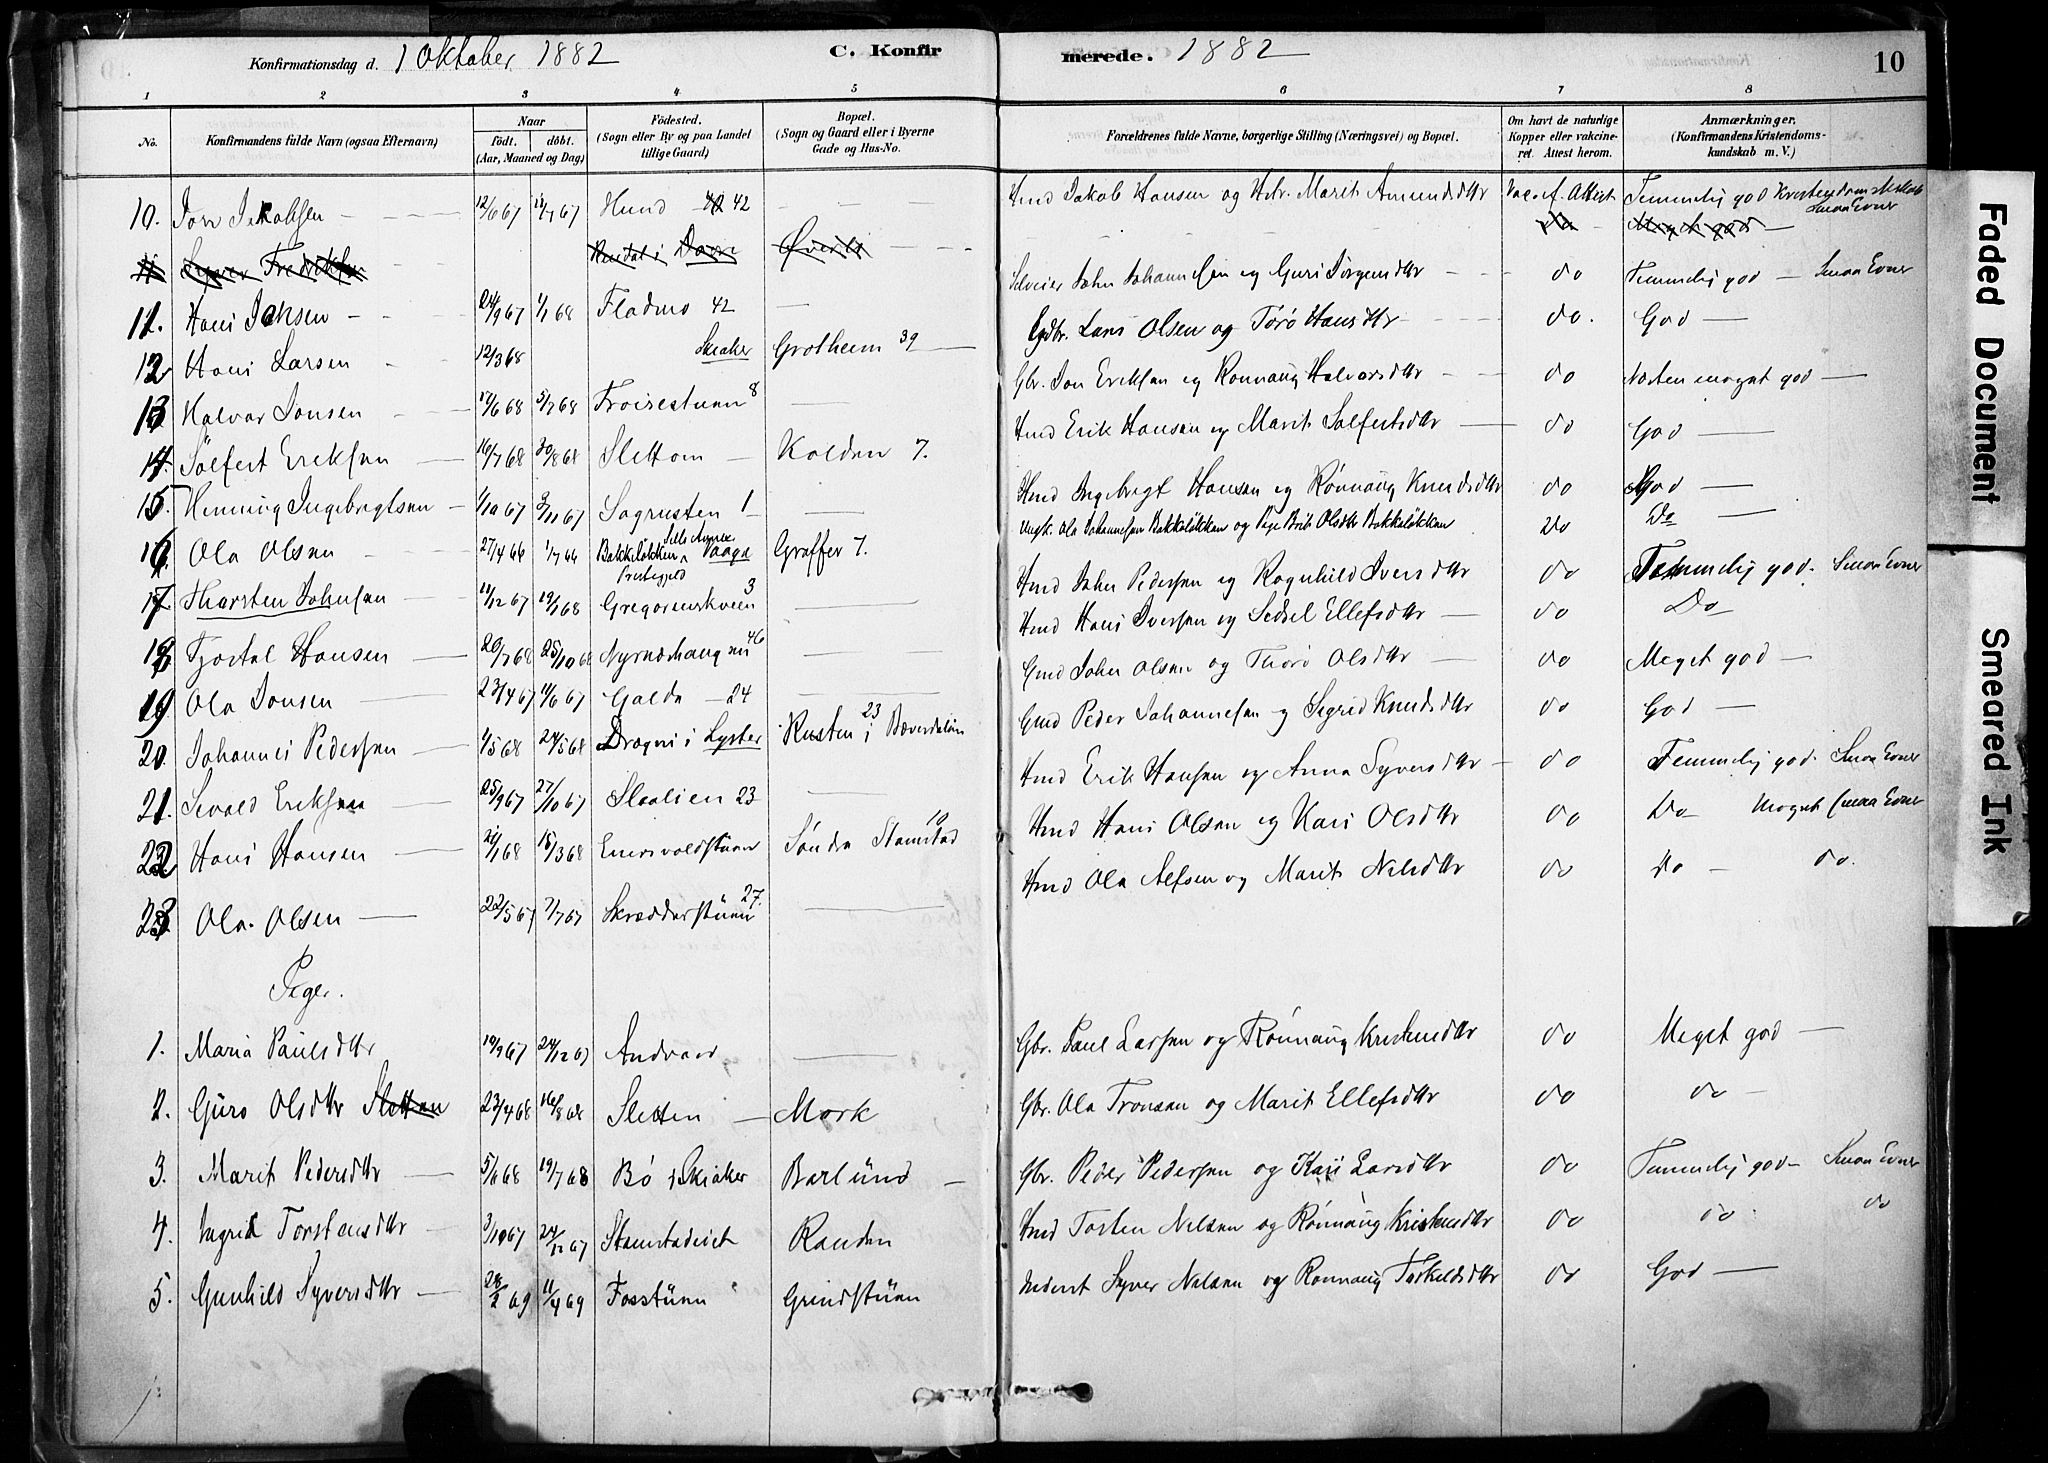 Konfirmationsdag d. 1 Oktober 1882 C. Konfirmerede. 1882 10
1 2 3 4 5 6 7 8
No. Konfirmandens fulde Navn (ogsaa Efternavn) Naar födt. döbt. (Aar, Maaned og Dag) Födested. (Sogn eller By og paa Landet tillige Gaard) Bopæl. (Sogn og Gaard eller i Byerne Gade og Hus-No. Forældrenes fulde Navne, borgerlige Stilling (Næringsvei) og Bopæl. Om havt de naturlige Kopper eller vakcineret. Attest herom. Anmærkninger. (Konfirmandens Kristendomskundskab m. V.)
10. Jon Jakobsen 12/6 67 67 Hund 42 Hmd Jakob Hansen og Hstr. Marit Amundsdtr Vac. A. Attest Temmelig god Kristendomskskab Smaa Evner
11 Syver Fredriksen i Dovre Øverli Do Meget god
11. Hans 24/9 67 1/1 68 Flademo 42 Selveier John Johannesen og Guri Jörgensdtr do Temmelig god Smaa Evner
12 Hans Larsen 12/3 68 Skiaker Grotheim 39 Gdbr. Lars Olsen og Törö Hansdtr do. God
13 Halvor Jonsen 17/6 68 5/7 68 Froisestuen 8 Gbr. Jon Eriksen og Rönnaug Halvorsdtr do Næsten meget god
14. Sölfest Eriksen 16/7 68 30/8 68 Slettom Kolden 7. Hmd Erik Hansen og Marit Solfestsdtr do God
15. Henning Ingebrigtsen 1/10 67 3/11 67 Sagrusten 1 Hmd Ingebrigt Hansen og Rönnaug Knudsdtr do God
16. Ola Olsen 27/4 66 1/7 66 Bakkelökken Sells Annex Vaage Prestegjeld Graffer 7. Ungk. Ola Johannesen Bakkelökken og Pige Brit Olsdtr Bakkelökken Do Do
17 Thorsten Johnsen 11/12 67 19/1 68 Gregoriuskveen 3 Hmd John Pedersen og Ragnhild Iversdtr do Temmelig god. Smaa Evner
18 Tjostol Hansen 20/7 68 25/10 68 46 Hmd Hans Iversen og Sidsel Ellefsdtr do Do
19 Ola Jonsen 23/4 67 11/6 67 Galde 24 Gmd John Olsen og Thorö Olsdtr do Meget god
20. Johannes Pedersen 1/5 68 24/5 68 Dragni i Lyster Rusten 23 i Bæverdalen Gmd Peder Johannesen og Sigrid Knudsdtr do God
21. Sivald Eriksen 25/9 67 27/10 67 Slaalien 23 Hmd Erik Hansen og Anna Syversdtr do Temmelig god. Smaa Evner
22 Hans Hansen 21/1 68 15/3 68 Söndre Stamstad 10 Hmd Hans Olsen og Kari Olsdtr do Do Meget smaa Evner
23 Ola Olsen 22/5 67 7/7 67 Skrædderstuen 27. Hmd Ola Alfsen og Marit Nilsdtr do do do.
Piger.
1. Maria Paulsdtr 19/9 67 24/12 67 Andvord Gbr. Paul Larsen og Rönnaug Kristensdtr do Meget god
2. Guro Olsdtr Sletten 23/4 68 16/8 68 Sletten Mork Gbr. Ola Tronsen og Marit Ellefsdtr do do
3. Marit Pedersdtr 5/6 68 19/7 68 Bö i Skiaker Barlund Gbr. Peder Pedersen og Kari Larsdtr do Temmelig god Smaa Evner
4. Ingrid Torstensdtr 3/10 67 24/12 67 Stamstadeiet Randen Hmd Tosten Nilsen og Rönnaug Kristensdtr do do. do
5. Gunhild Syversdtr 28/2 69 11/4 69 Fosstuen Grindstuen Inderst Syver Nilsen og Rönnaug Torkeldsdtr do God
Faded Document
Smeared Ink